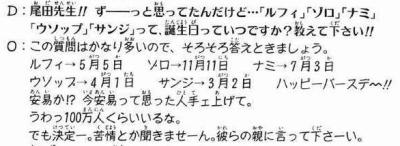 D：尾田先生!! ずーーっと思ってたんだけど…「ルフィ」「ゾロ」「ナミ」
「ウソップ」「サンジ」って、誕生日っていつですか？教えて下さい!!
O：この質問はかなり多いので、そろそろ答えときましょう。
ルフィ→5月5日 ゾロ→11月11日 ナミ→7月3日
ウソップ→4月1日 サンジ→3月2日 ハッピーバースデー!!
安易か!? 今安易って思った人手ェ上げて。
うわっ100万人くらいいるな。
でも決定ー。苦情とか聞きませーん。彼らの親に言って下さーい。